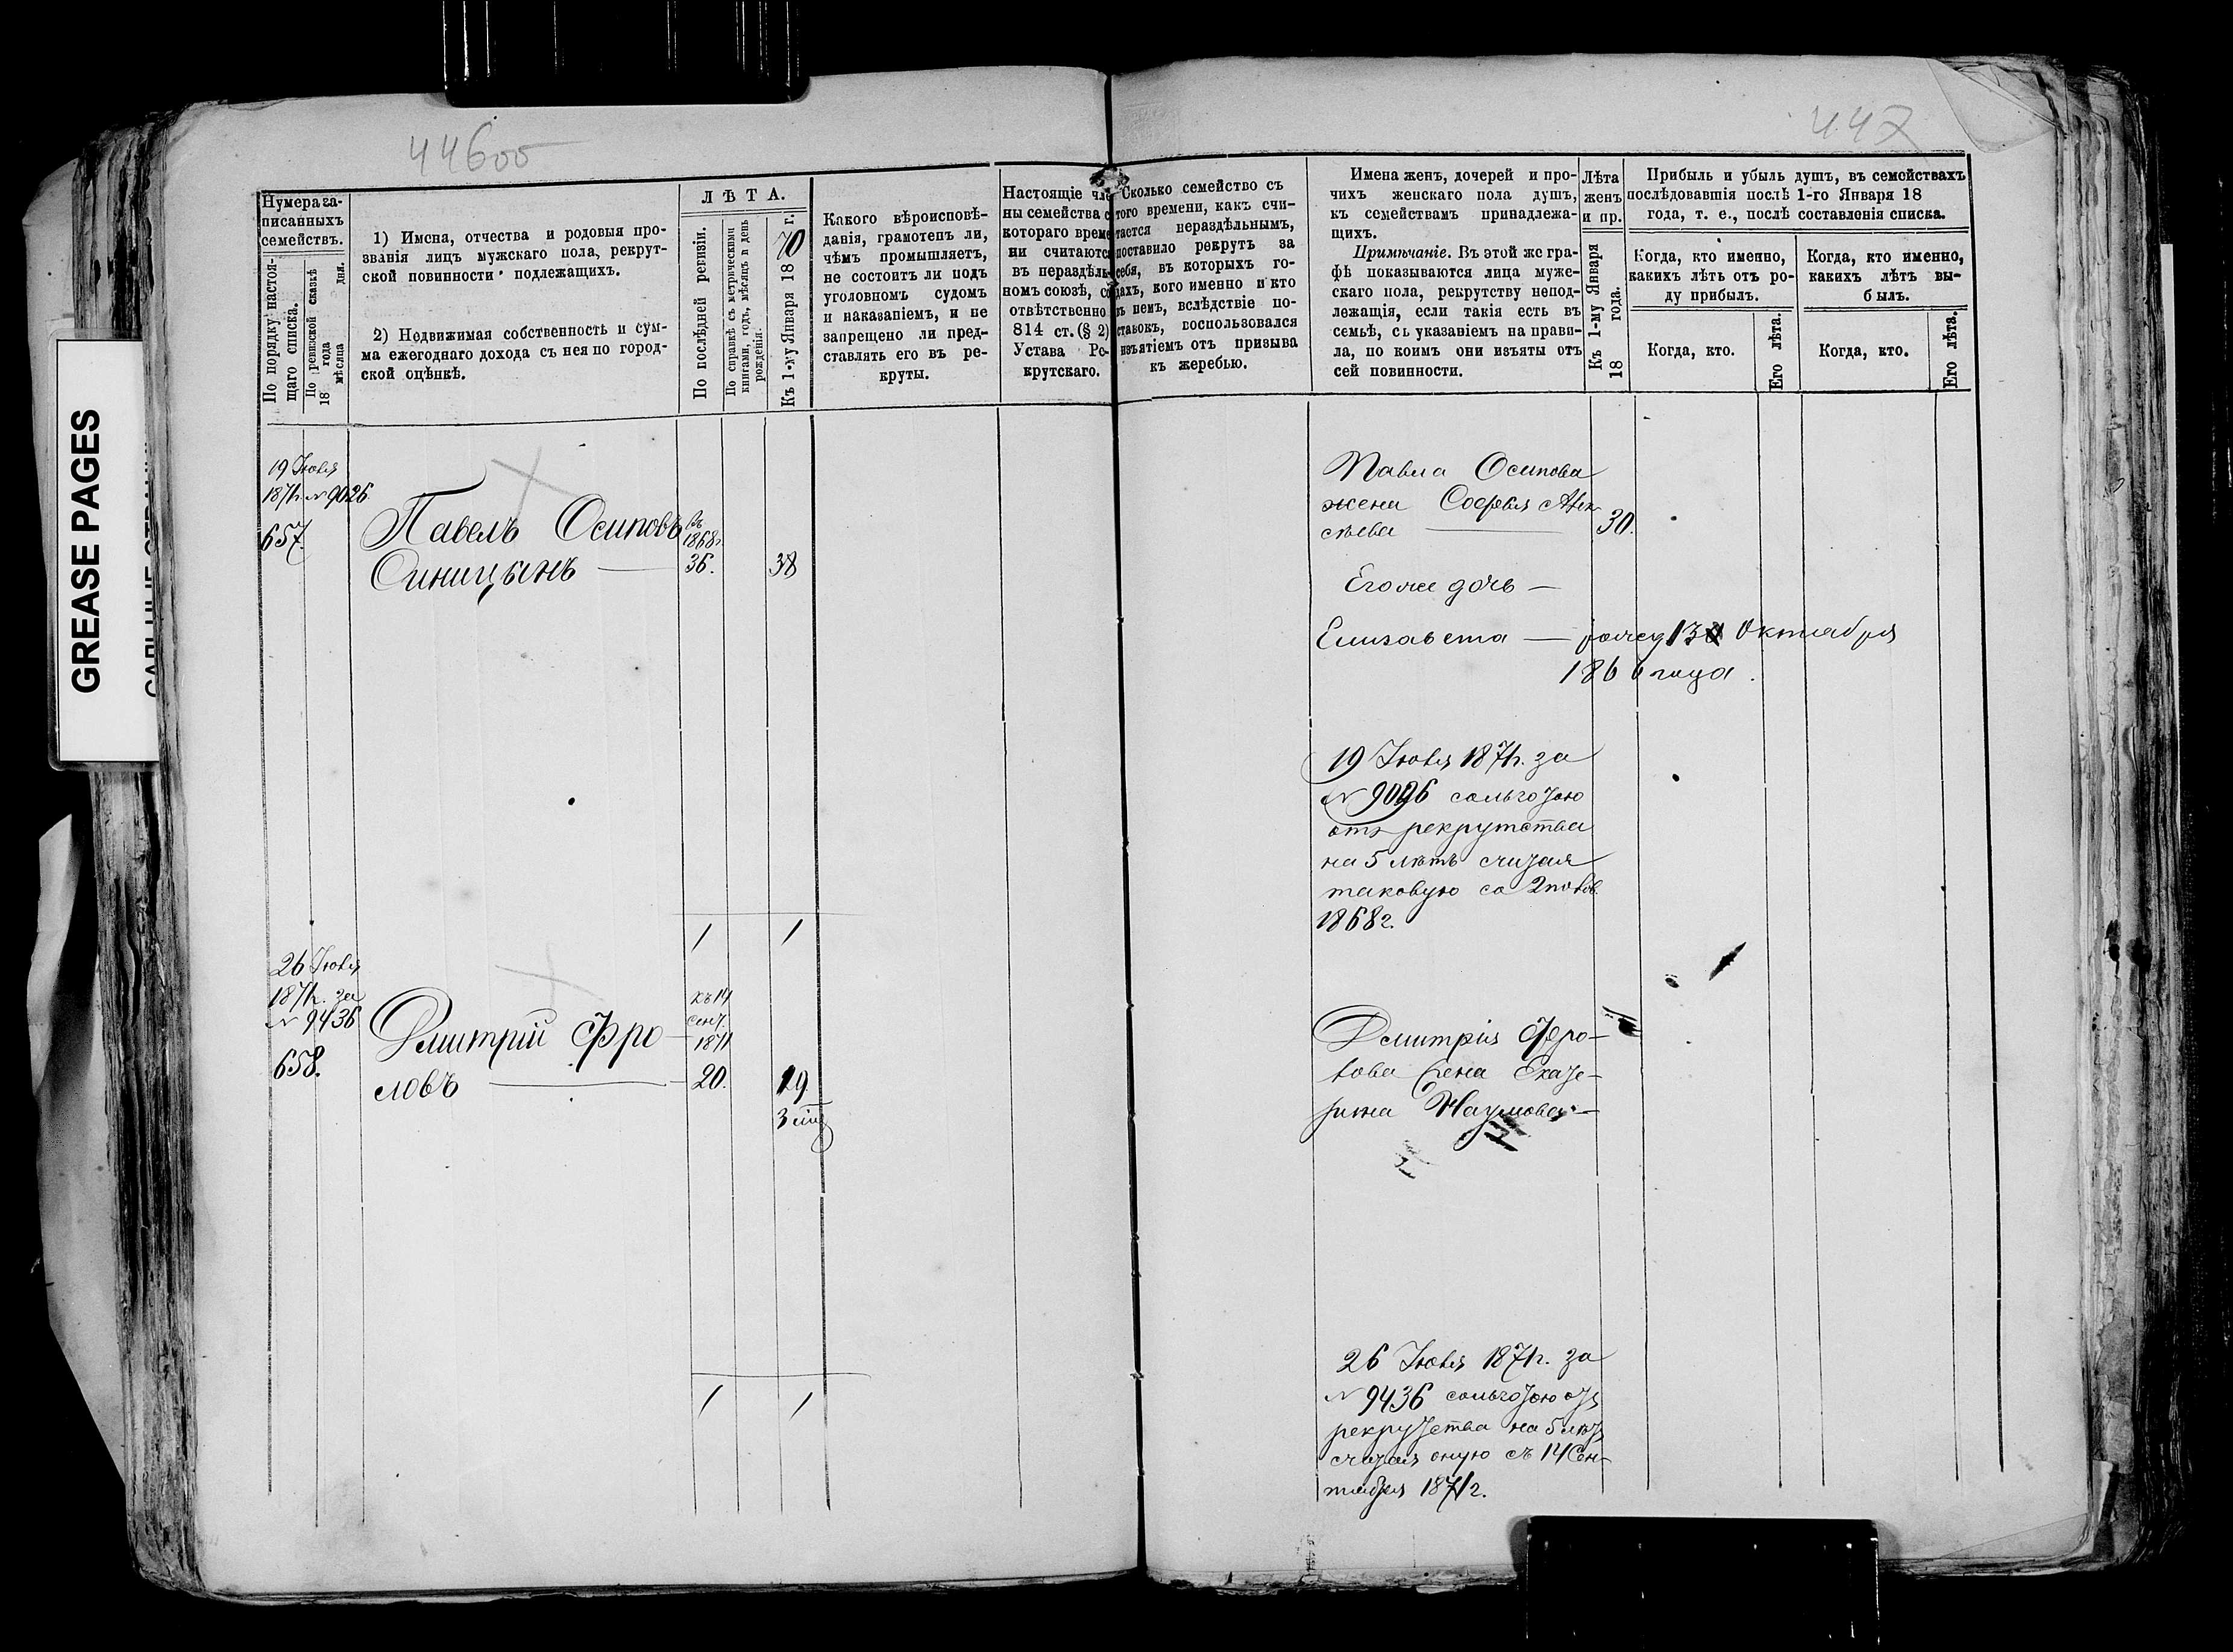 44600
447
GREASE PAGES
Нумера за-
писанныхъ
семействъ.
По порядку настоя-
щаго списка.
По ревизской сказкѣ
18 года
мѣсяца дня.
1) Имена, отчества и родовыя про-
званія лицъ мужскаго пола, рекрут-
ской повинности подлежащихъ.
2) Недвижимая собственность и сум-
ма ежегоднаго дохода съ нея по город-
ской оцѣнкѣ.
ЛѢТА.
По послѣдней ревизіи.
По справкѣ съ метрическими
книгами, годъ, мѣсяцъ и день
рожденія.
Къ 1-му Января 1870 г.
Какого вѣроисповѣ-
данія, грамотенъ ли,
чѣмъ промышляетъ,
не состоитъ ли подъ
уголовномъ судомъ
и наказаніемъ, и не
запрещено ли пред-
ставлять его въ ре-
круты.
Настоящіе чле
ны семейства с
котораго време
ни считаются
въ нераздѣль-
номъ союзѣ, со
отвѣтственно
814 ст. (§ 2)
Устава Ре-
крутскаго.
Сколько семейство съ
того времени, какъ счи-
тается нераздѣльнымъ,
поставило рекрутъ за
себя, въ которыхъ го-
дахъ, кого именно и кто
въ немъ, вслѣдствіе по-
ставокъ, воспользовался
изъятіемъ отъ призыва
къ жеребью.
Имена женъ, дочерей и про-
чихъ женскаго пола душъ,
къ семействамъ принадлежа-
щихъ.
Примѣчаніе. Въ этой же гра-
фѣ показываются лица муже-
скаго пола, рекрутству непод-
лежащія, если такія есть въ
семьѣ, съ указаніемъ на прави-
ла, по коимъ они изъяты отъ
сей повинности.
Лѣта
женъ
и пр.
Къ 1-му Января
18 года.
Прибыль и убыль душъ, въ семействахъ
послѣдовавшія послѣ 1-го Января 18
года, т. е., послѣ составленія списка.
Когда, кто именно,
какихъ лѣтъ отъ ро-
ду прибылъ.
Когда, кто именно,
какихъ лѣтъ вы-
былъ.
Когда, кто.
Его лѣта.
Когда, кто.
Его лѣта.
19 Іюля
1871г. № 9026
657.
Павелъ Осиповъ
Синицынъ
въ
1868г.
36.
38
1 1
Павла Осипова
жена Софья Алек-
сѣева 30.
Его же дочь
Елизавета 13 Октября
1866 года.
19 Іюля 1871г. за
№ 9026 сольготою
отъ рекрутства
на 5 лѣтъ считая
таковую со 2
1868г.
26 Іюля
1871г. за
№ 9436
658.
Дмитрій Фро-
ловъ
къ 14
сент.
1871
20.
19
3
1 1
Дмитрія Фро-
лова жена Екате-
рина Наумова
26 Іюля 1871г. за
№ 9436 сольготою отъ
рекрутства на 5 лѣтъ
считая оную съ 14 Сен-
тября 1871г.